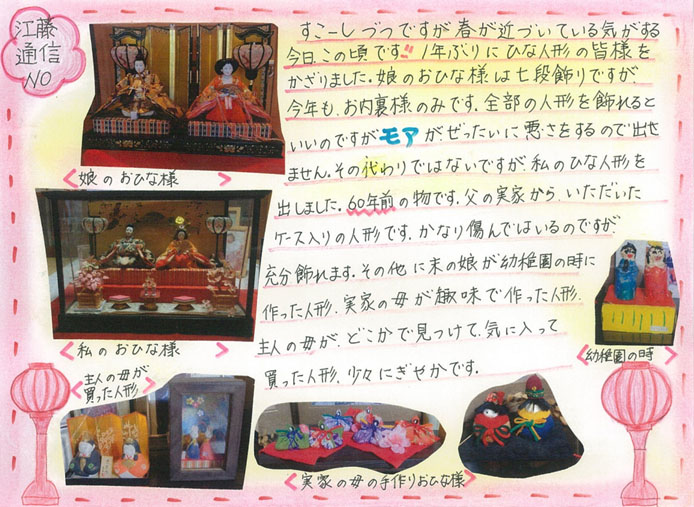 江藤
通信
NO
すこーしづつですが春が近づいている気がする
今日この頃です!! 1年ぶりにひな人形の皆様を
かざりました。娘のおひな様は七段飾りですが、
今年も、お内裏様のみです。全部の人形を飾れると
いいのですがモアが、ぜったいに悪さをするので出せ
ません。その代わりではないですが、私のひな人形を
出しました。60年前の物です。父の実家から、いただいた
ケース入りの人形です。かなり傷んではいるのですが
充分飾れます。その他に末の娘が幼稚園の時に
作った人形、実家の母が趣味で作った人形、
主人の母が、どこかで見つけて、気に入って
買った人形、少々にぎやかです。
<娘のおひな様>
<私のおひな様>
<幼稚園の時>
主人の母が
<買った人形>
<実家の母の手作りおひな様>